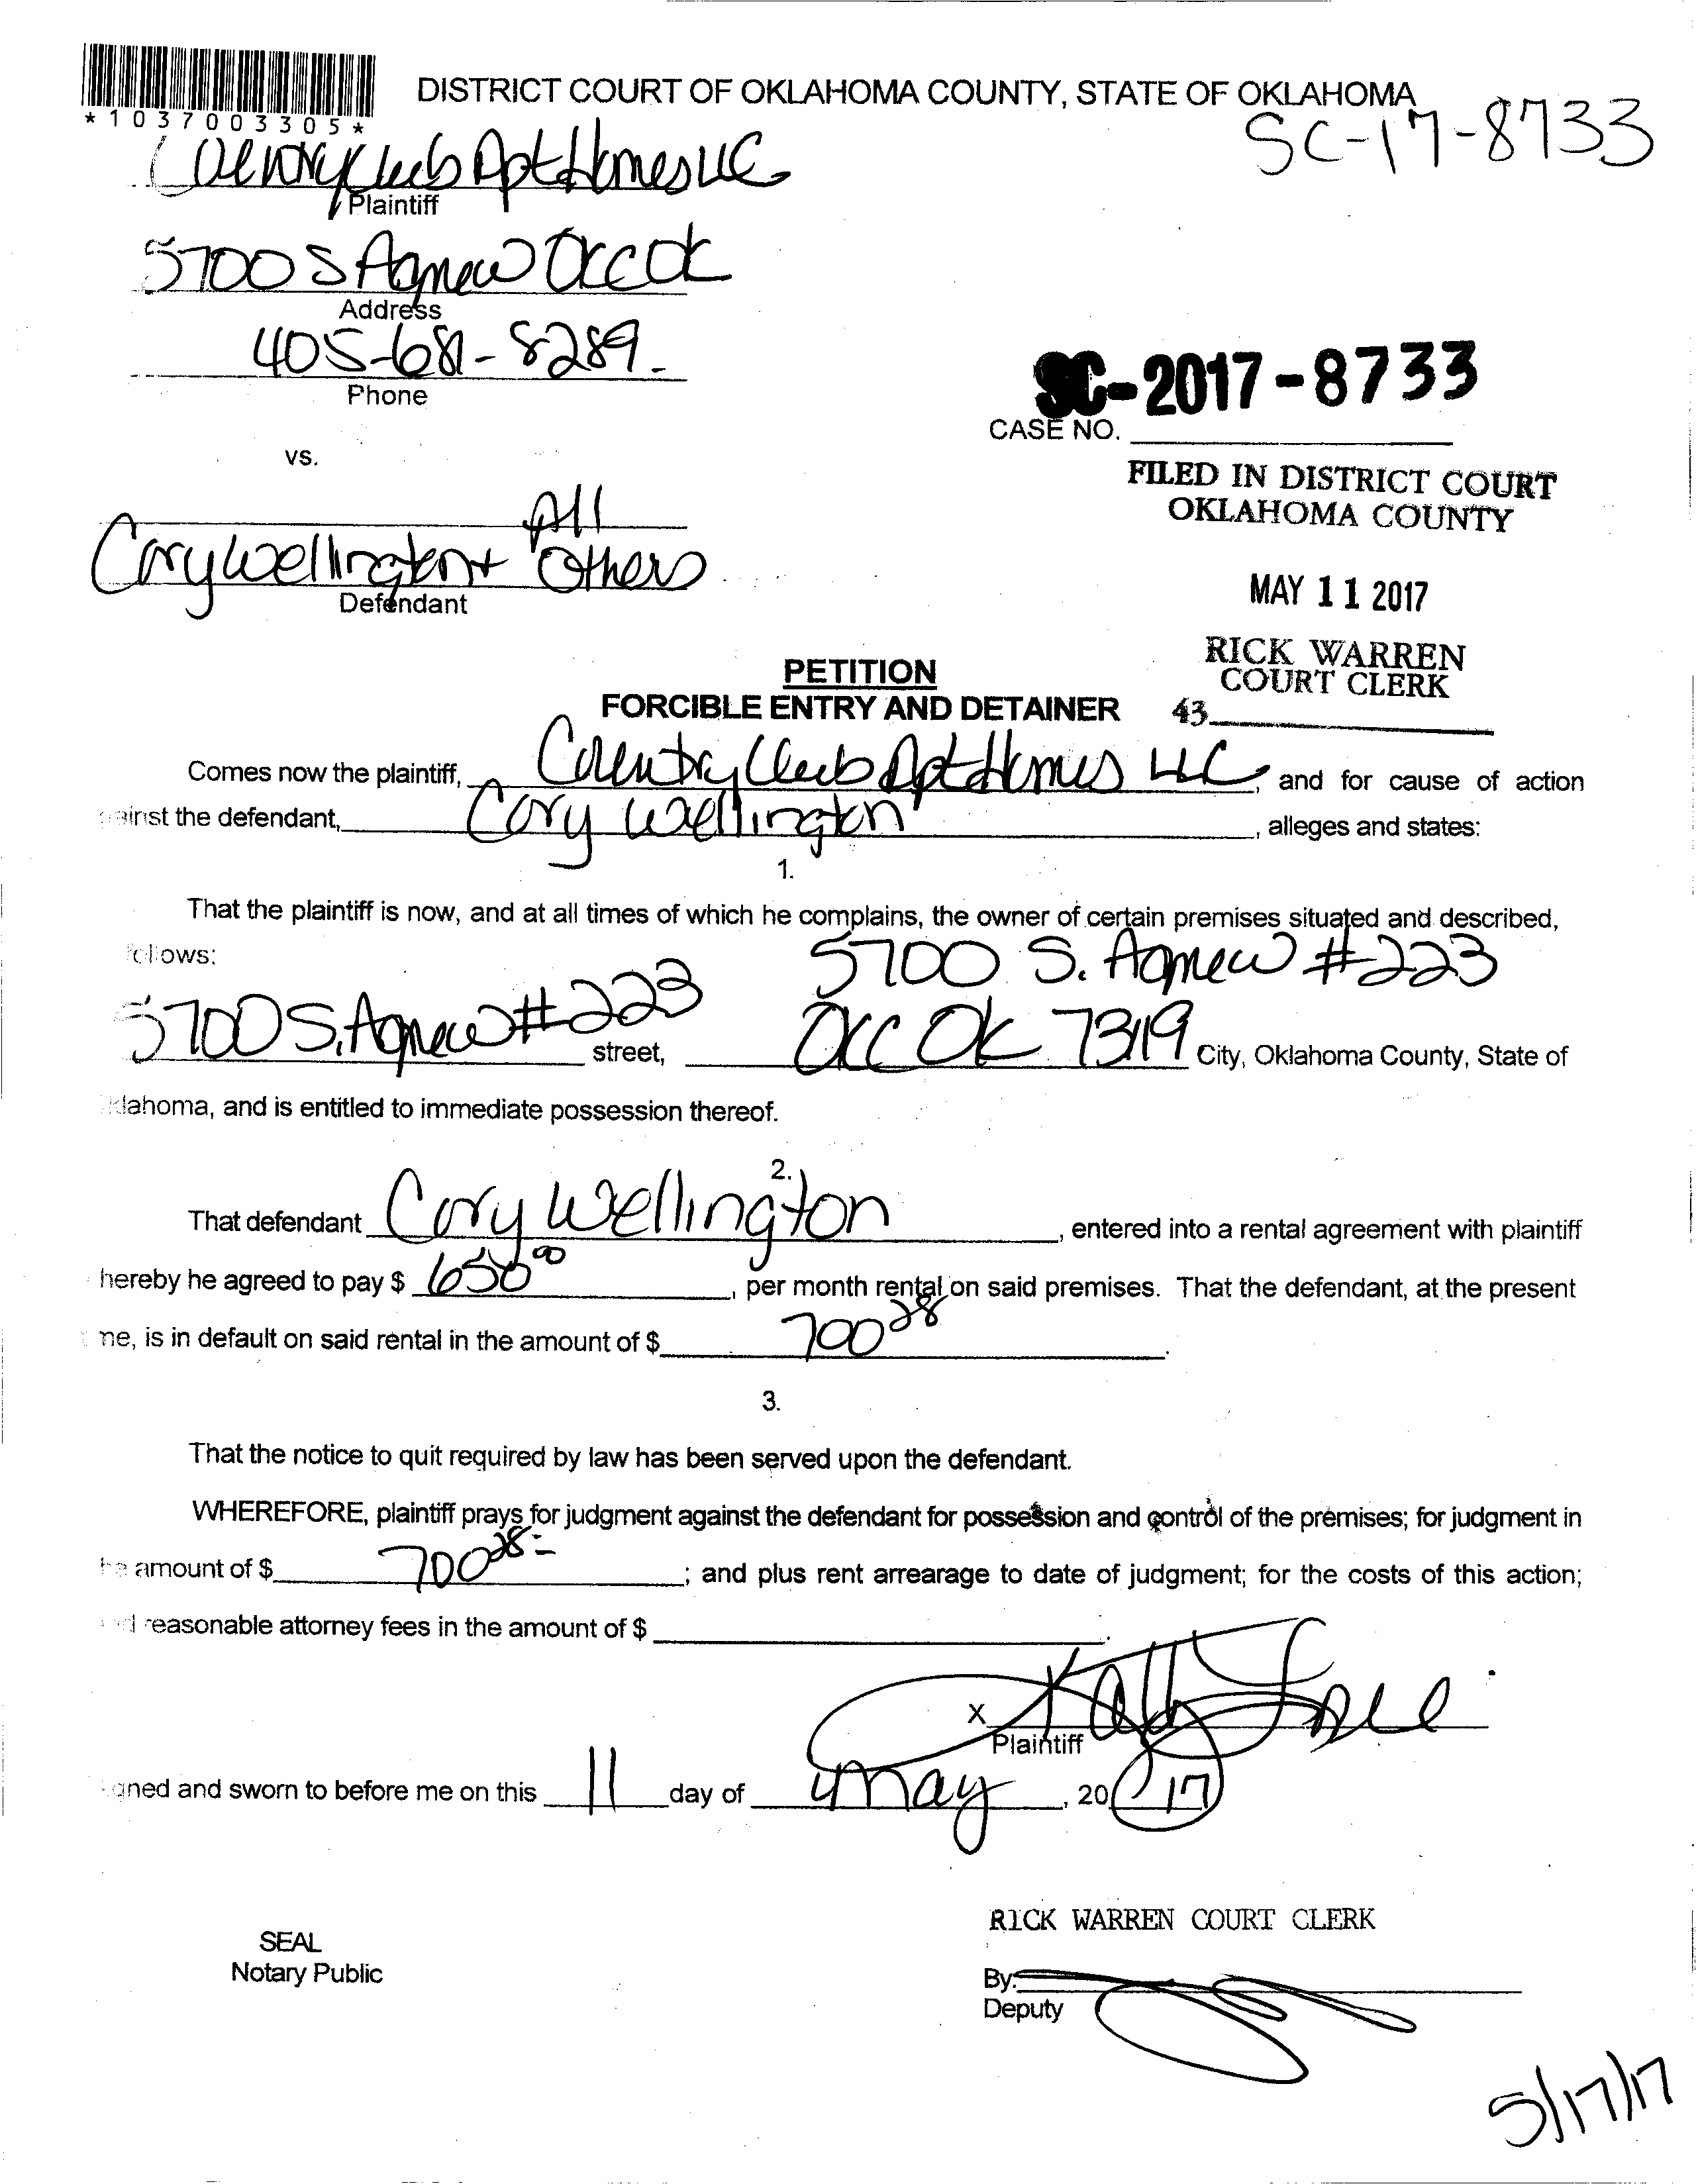 *1037003305*
DISTRICT COURT OF OKLAHOMA COUNTY, STATE OF OKLAHOMA
SC-17-8733
Country Club Apt Homes LLC
Plaintiff
5700 S Agnew OKC OK
Address
405-681-8289
Phone
SC-2017-8733
CASE NO.
vs.
FILED IN DISTRICT COURT
OKLAHOMA COUNTY
All
Cory Wellington + Others
Defendant
MAY 11 2017
RICK WARREN
COURT CLERK
43
PETITION
FORCIBLE ENTRY AND DETAINER
Comes now the plaintiff, Country Club Apt Homes LLC, and for cause of action
ainst the defendant, Cory Wellington, alleges and states:
1.
That the plaintiff is now, and at all times of which he complains, the owner of certain premises situated and described,
llows:
5700 S. Agnew #223
5700 S. Agnew #223 street, OKC OK 73119 City, Oklahoma County, State of
klahoma, and is entitled to immediate possession thereof.
2.
That defendant Cory Wellington, entered into a rental agreement with plaintiff
hereby he agreed to pay $ 650 00, per month rental on said premises. That the defendant, at the present
me, is in default on said rental in the amount of $ 700 28.
3.
That the notice to quit required by law has been served upon the defendant.
WHEREFORE, plaintiff prays for judgment against the defendant for possession and control of the premises; for judgment in
he amount of $ 700 28; and plus rent arrearage to date of judgment; for the costs of this action;
d reasonable attorney fees in the amount of $
X
Plaintiff
gned and sworn to before me on this 11 day of May, 20 17
RICK WARREN COURT CLERK
SEAL
Notary Public
By:
Deputy
5/17/17